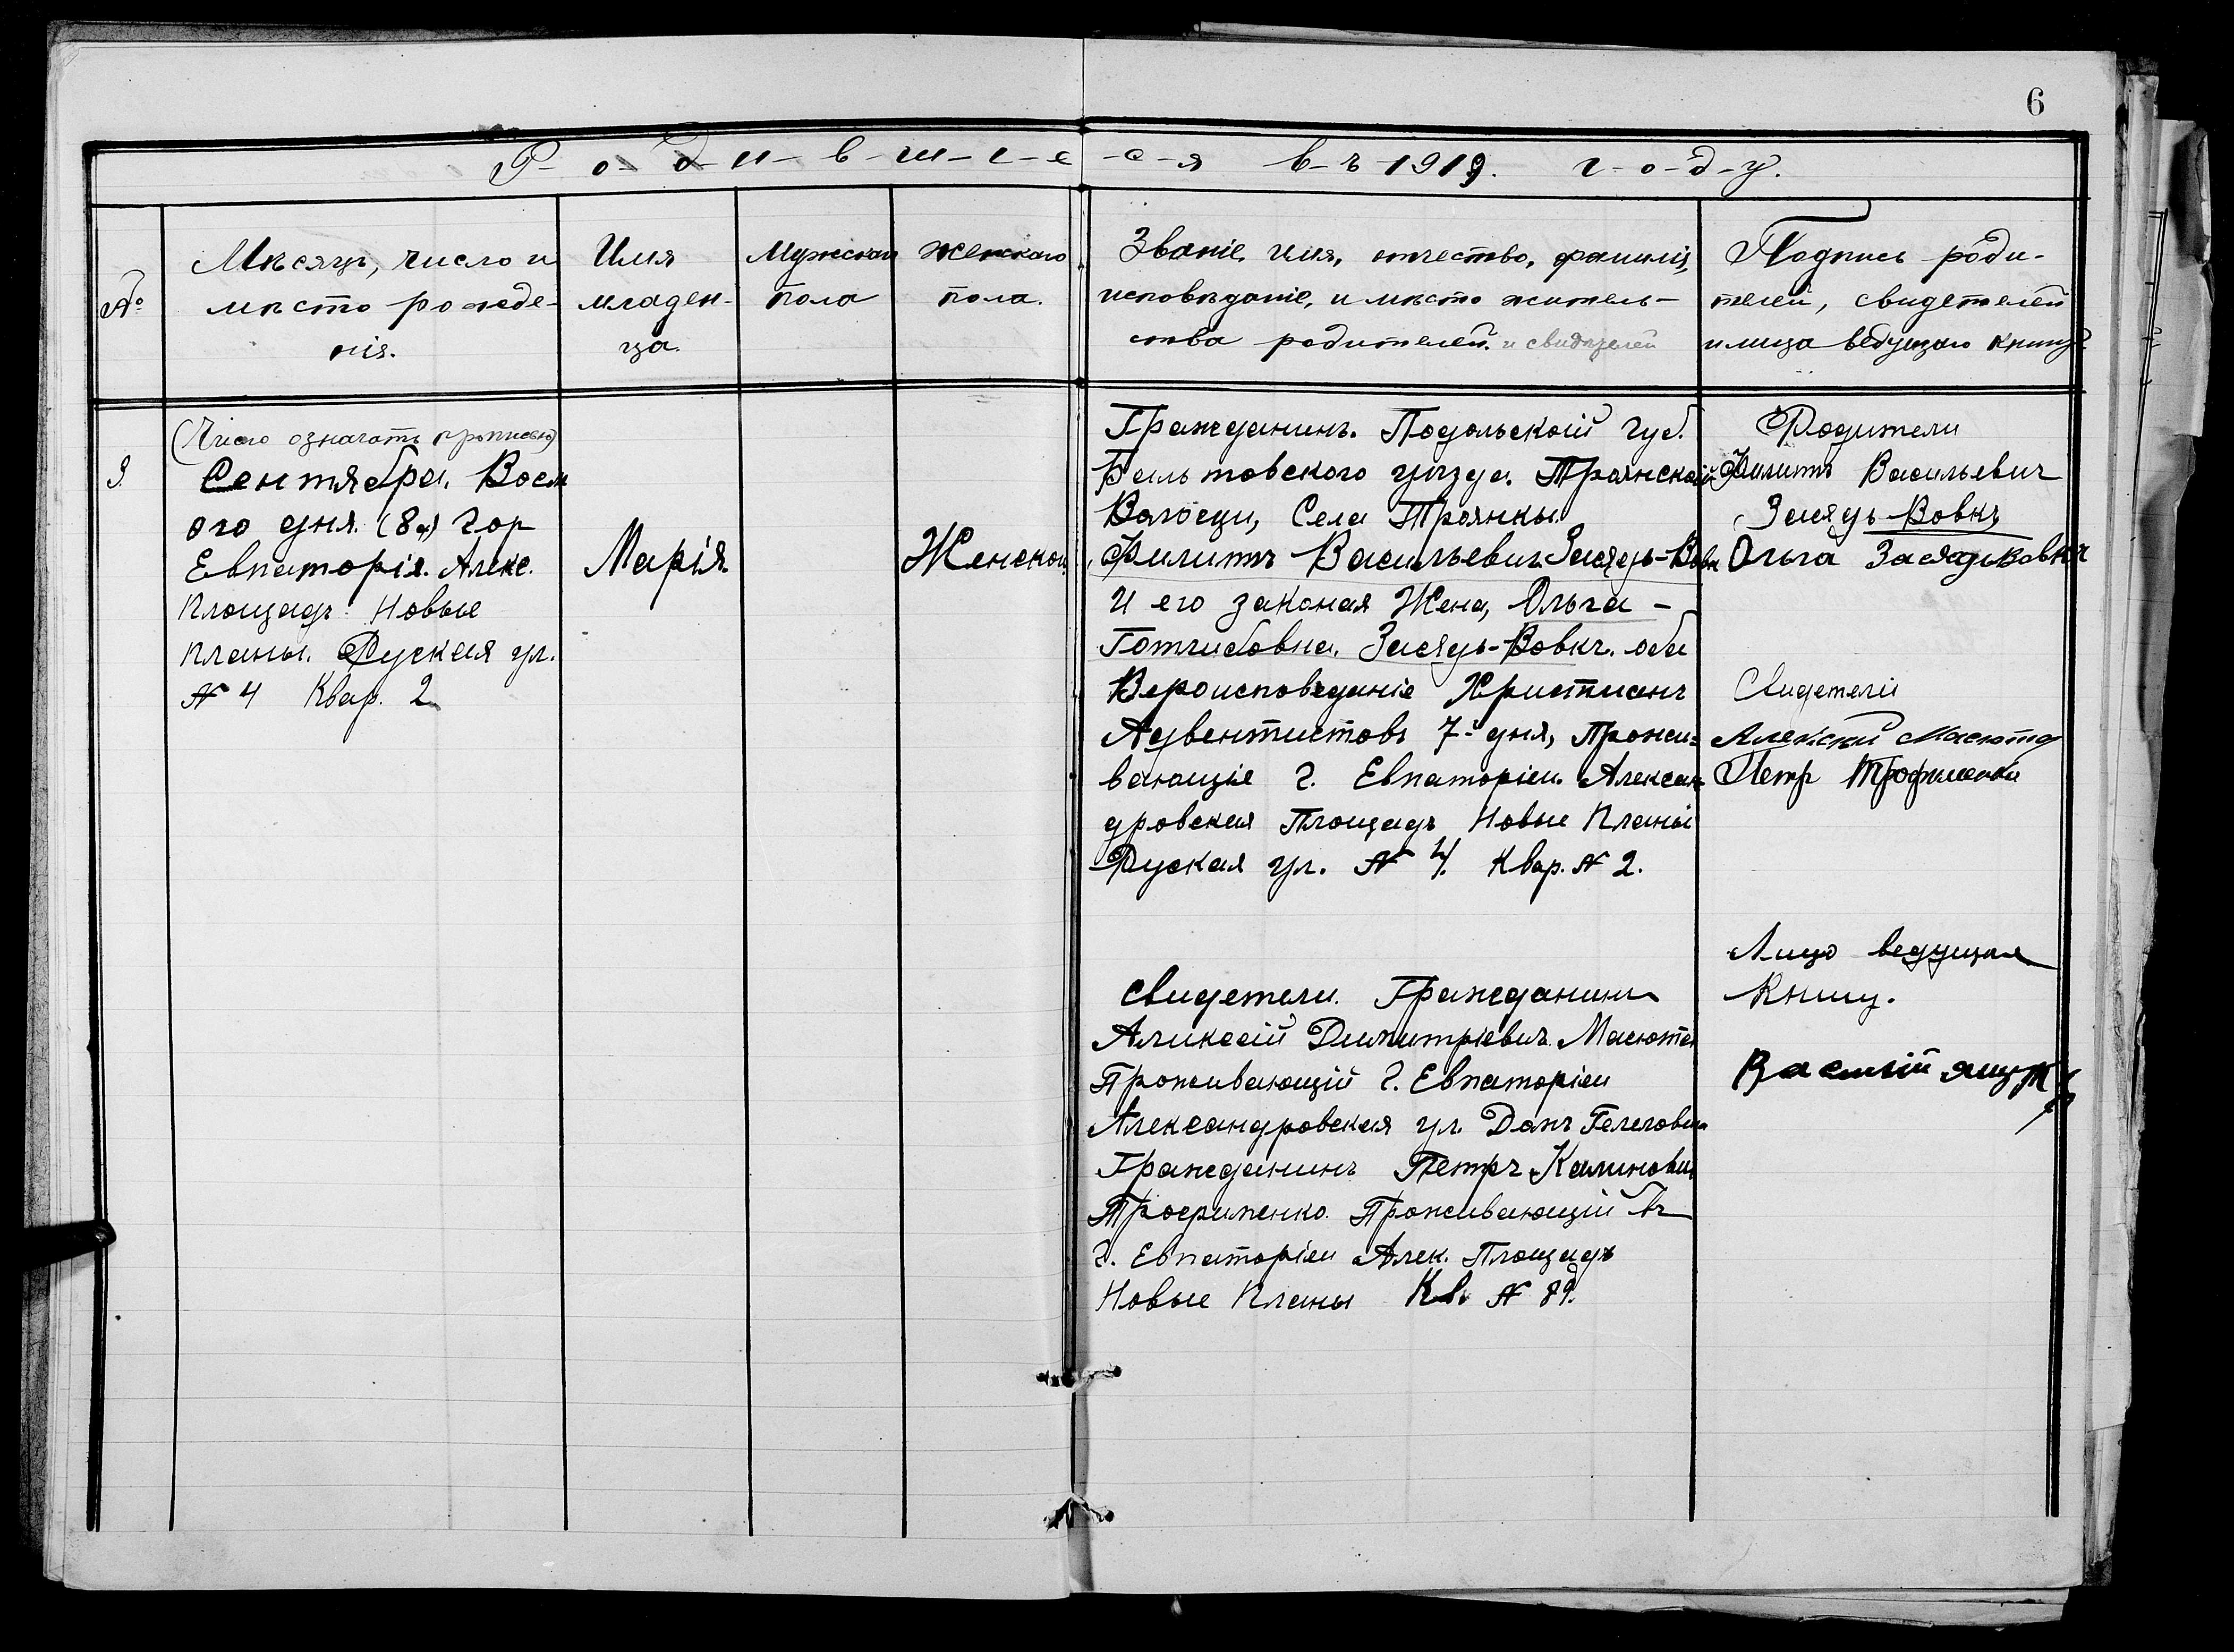 6
Р-о-д-и-в-ш-і-е-с-я въ 1919. г-о-д-у.
№
Мѣсяцъ, число и
мѣсто рожде-
нія.
Имя
младен-
ца.
Мужскаго
пола
Женскаго
пола.
Званіе, имя, отчество, фамилія,
исповѣданіе, и мѣсто житель-
ства родителей. и свидѣтелей
Подпись роди-
телей, свидетелей
и лица ведущаго книгу
(Число означать прописью)
Сентября. Восм
ого дня. (8го) Гор
Евпаторія. Алекс.
Площадь Новые
планы. Руская ул.
№ 4 Квар. 2
Марія.
Женской
Гражданинъ. Подольской Губ.
Балтовского уѣзда. Троянской
Волосци, Села Троянкы.
Филиппъ Васильевич Заядь-Вовк
И его законая Жена, Ольга -
Готлибовна. Заядь-Вовкъ. оба
Вероисповеданіе Христианъ
Адвентистовъ 7-дня, Прожи-
вающіе г. Евпаторіи. Алексан-
дровская Площадь Новые Планы
Руская ул. № 4. Квар. № 2.
Свидетели. Гражданинъ
Аликсей Димитріевичъ Масюта
Проживающій г. Евпаторіи
Александровская ул. Дапъ Гелеловича
Гражданинъ Петръ Калиновичъ
Трофименко. Проживающій въ
г. Евпаторіи Алек. Площадь
Новые Планы Кв. № 89.
Родители
Филипъ Васильевич
Заядь-Вовкъ
Ольга Заядьвовкъ
Свидетели
Алексей Масюта
Петр Трофименко
Лицо ведущая
Книгу.
Василій